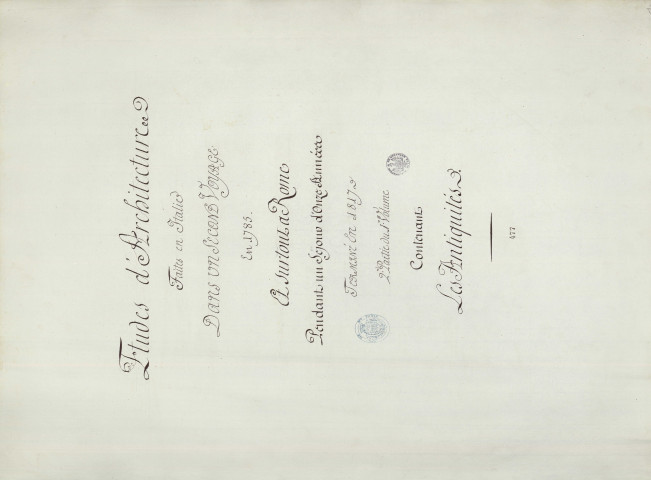 Etudes d'Architecture
Faites en Italie
Dans un Second Voyage
En 1783.
Et surtout a Rome
Pendant un Sejour d'Onze Années
Terminé En 1817
2e Partie du 1r Volume
Contenant
Les Antiquités.
477